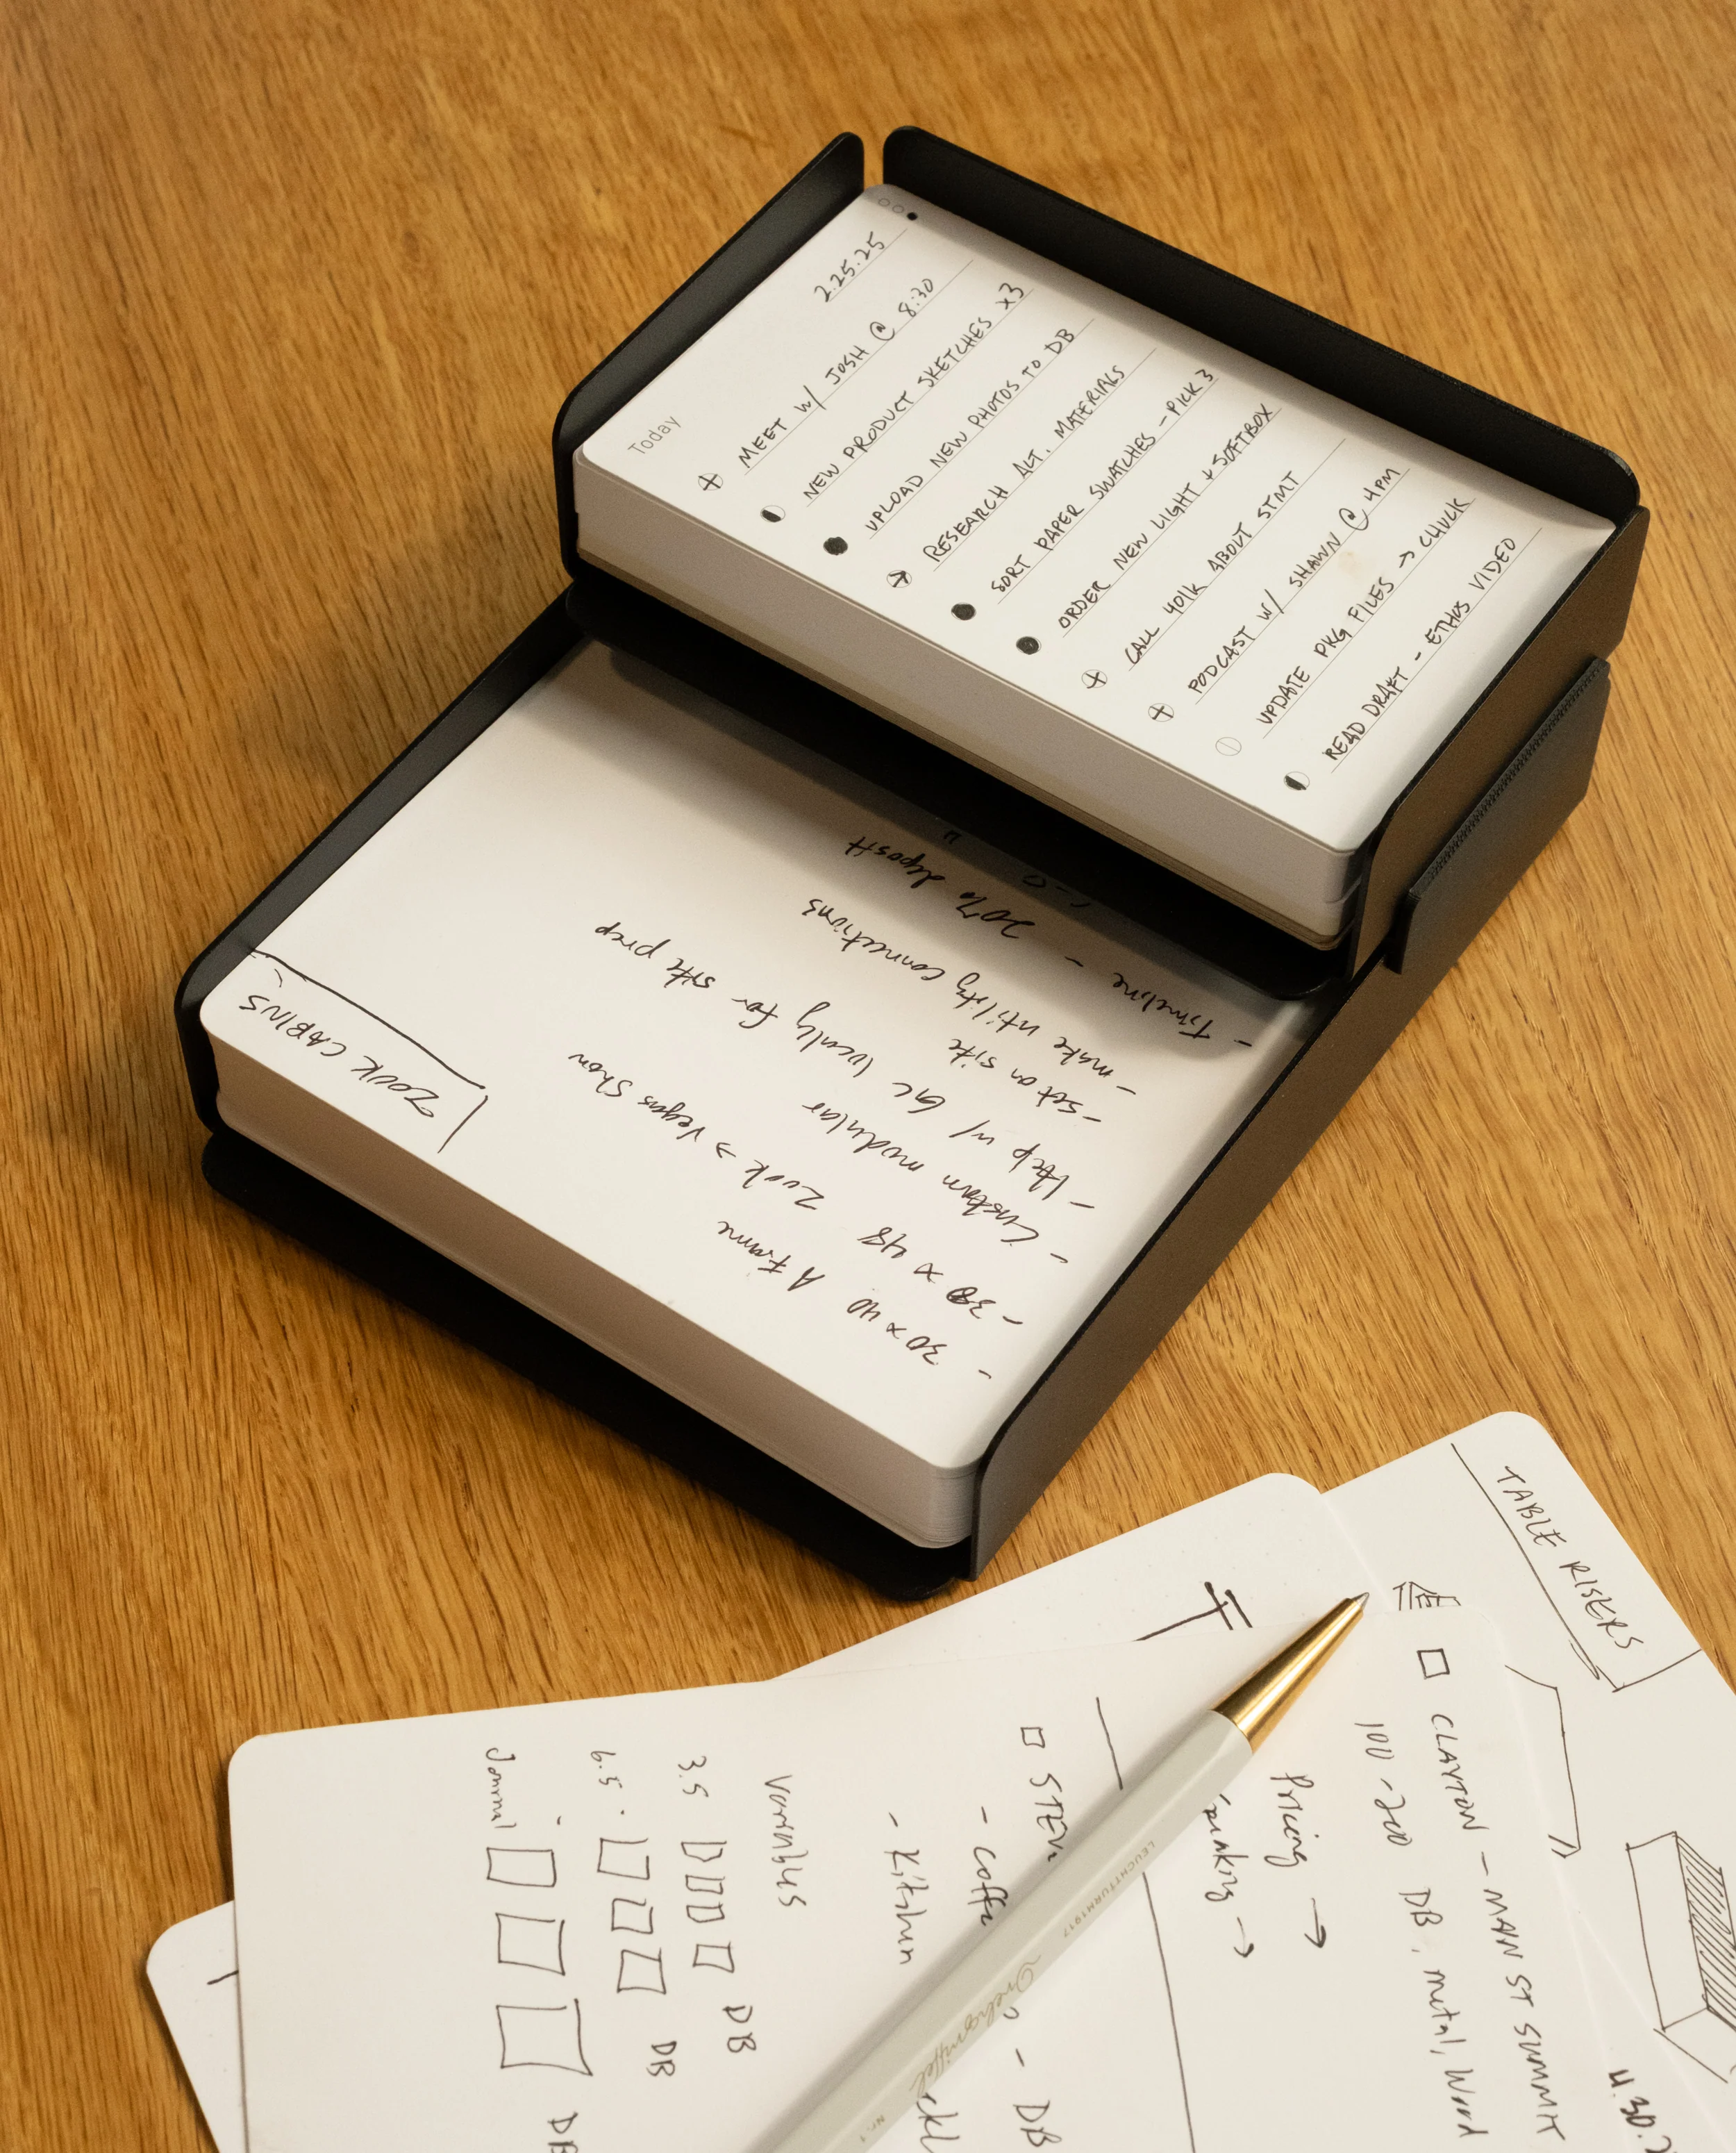 Today
2.25.25
MEET W/ JOSH @ 8:30
NEW PRODUCT SKETCHES x3
UPLOAD NEW PHOTOS TO DB
RESEARCH ALT. MATERIALS
SORT PAPER SWATCHES - PICK 3
ORDER NEW LIGHT + SOFTBOX
CALL 401K ABOUT STMT
PODCAST W/ SHAWN @ 4PM
UPDATE PKG FILES → CHUCK
READ DRAFT - ETHOS VIDEO
ZOOK CABINS
- 30 x 40 A Frame
- 38 x 48 Zook → Vegas Show
- Custom modular
- Help w/ GC locally for site prep
- set on site
- make utility connections
- Timeline - 20% deposit
TABLE RISERS
CLAYTON - MAIN ST SUMMIT
100 - 200 DB, metal, Wood
Pricing →
- Kitchen
Variables
3.5 DB
6.5 DB
Journal DB
- DB
LEUCHTTURM1917
Drehgriffel
Nr. 1